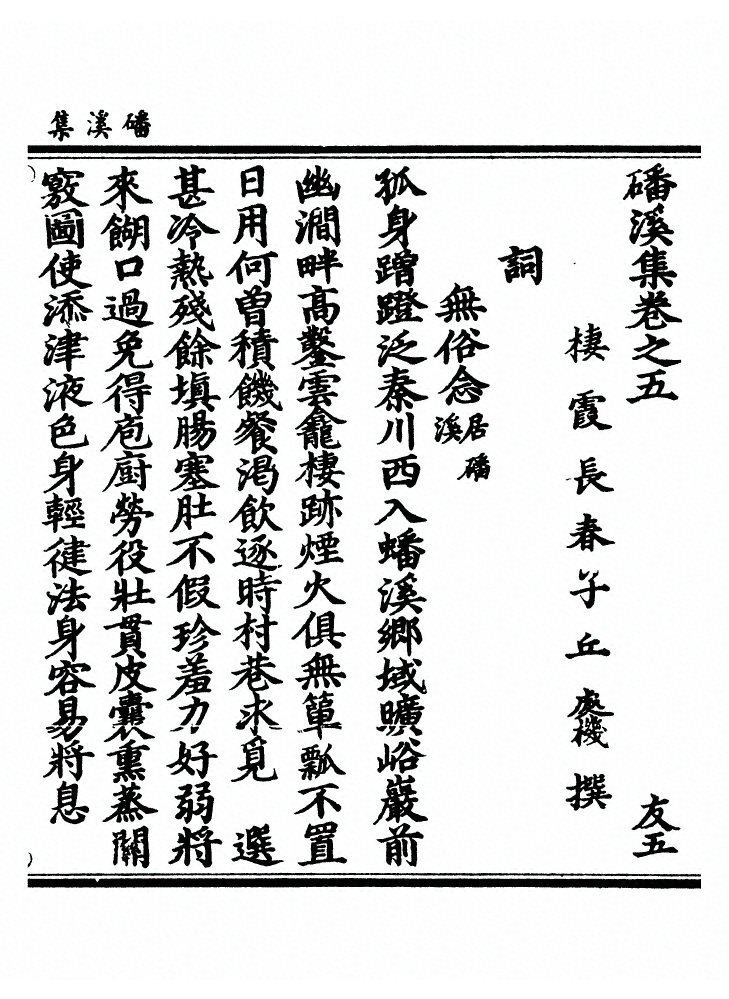 磻溪集
磻溪集卷之五　友五
棲霞長春子丘處機撰
詞
無俗念居磻溪
孤身蹭蹬泛秦川西入蟠溪鄉域曠峪巖前
幽澗畔高鑿雲龕棲跡煙火俱無簞瓢不置
日用何曾積饑餐渴飲逐時村巷求覓　選
甚冷熱殘餘填腸塞肚不假珍羞力好弱將
來餬口過免得庖廚勞役壯貫皮囊熏蒸關
竅圖使添津液色身輕健法身容易將息